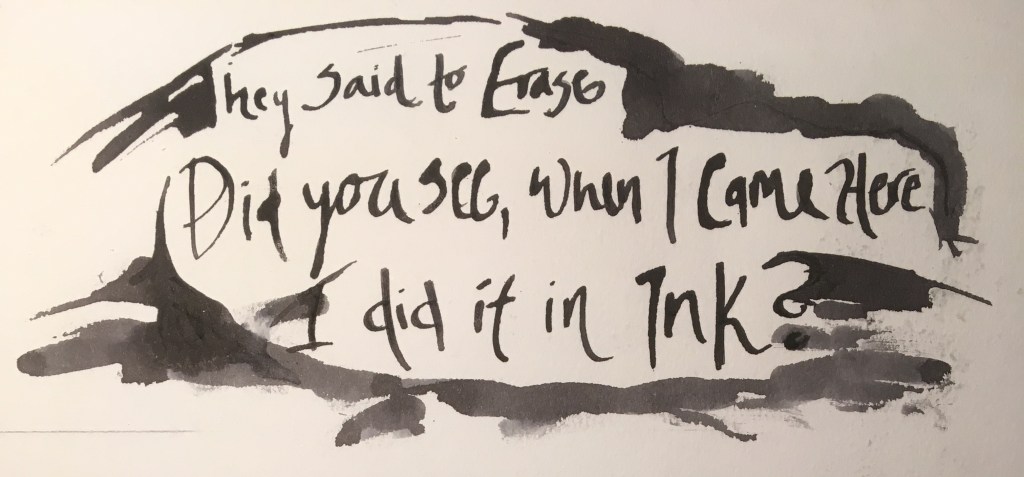 They said to Erase
Did you see, when I Came Here
I did it in Ink?